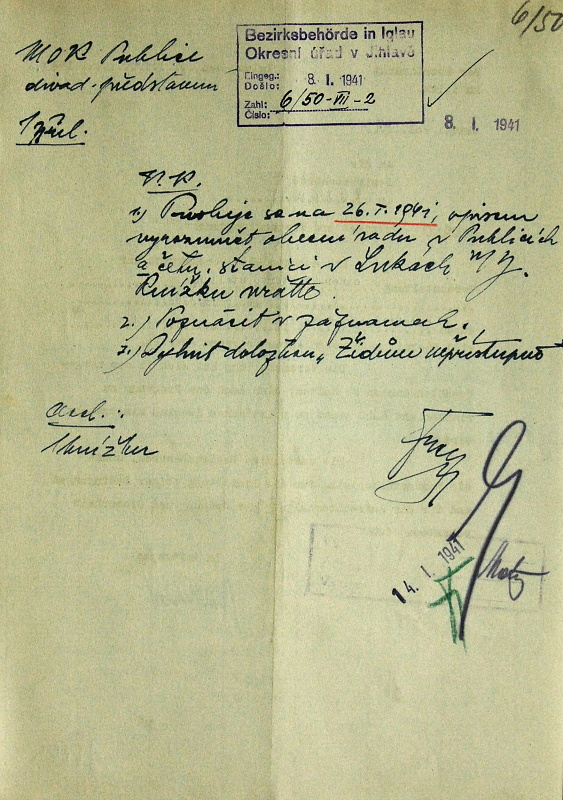 6/50
Bezirksbehörde in Iglau
Okresní úřad v Jihlavě
Eingeg.:
Došlo: 8. I. 1941
Zahl:
Číslo: 6/50-VII-2
8. I. 1941
MOK Puklice
divad. představení
1 příl.
1.) Povoluje se na 26. I. 1941, opisem
vyrozumět obecní radu v Puklicích
a četn. stanici v Lukách n/J.
Knížku vraťte.
2.) Poznačit v záznamech.
3.) doložku „Židům nepřístupno"
1 knížka
14. I. 1941